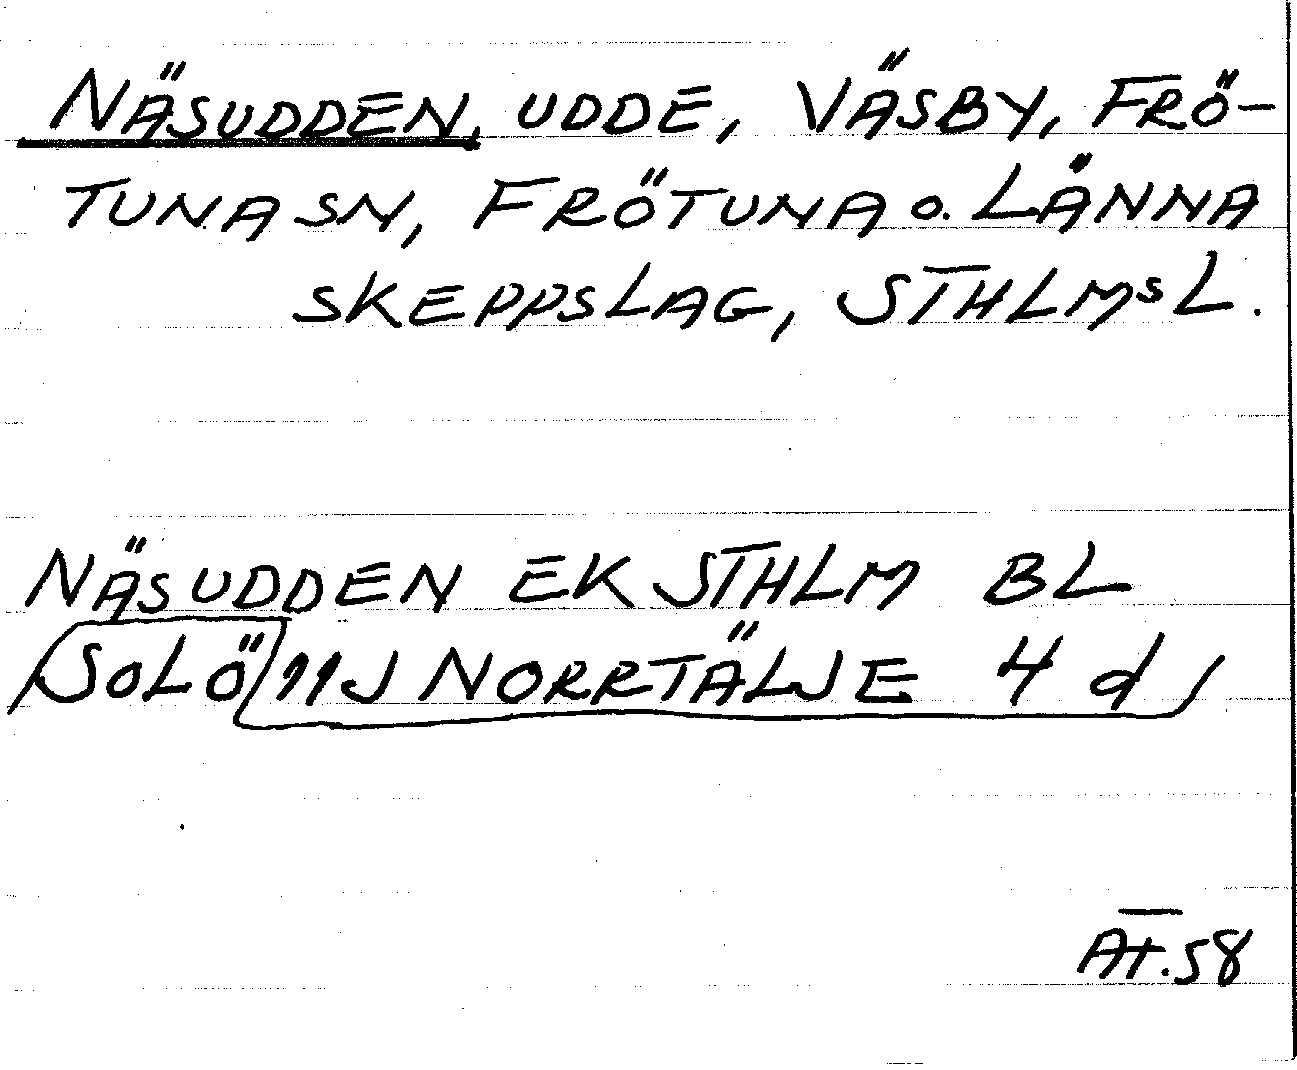 NÄSUDDEN, UDDE, VÄSBY, FRÖ-
TUNA SN, FRÖTUNA o. LÄNNA
SKEPPSLAG, STHLMS L.
NÄSUDDEN EK STHLM BL
SOLÖ 11J NORRTÄLJE 4 d
AT.58